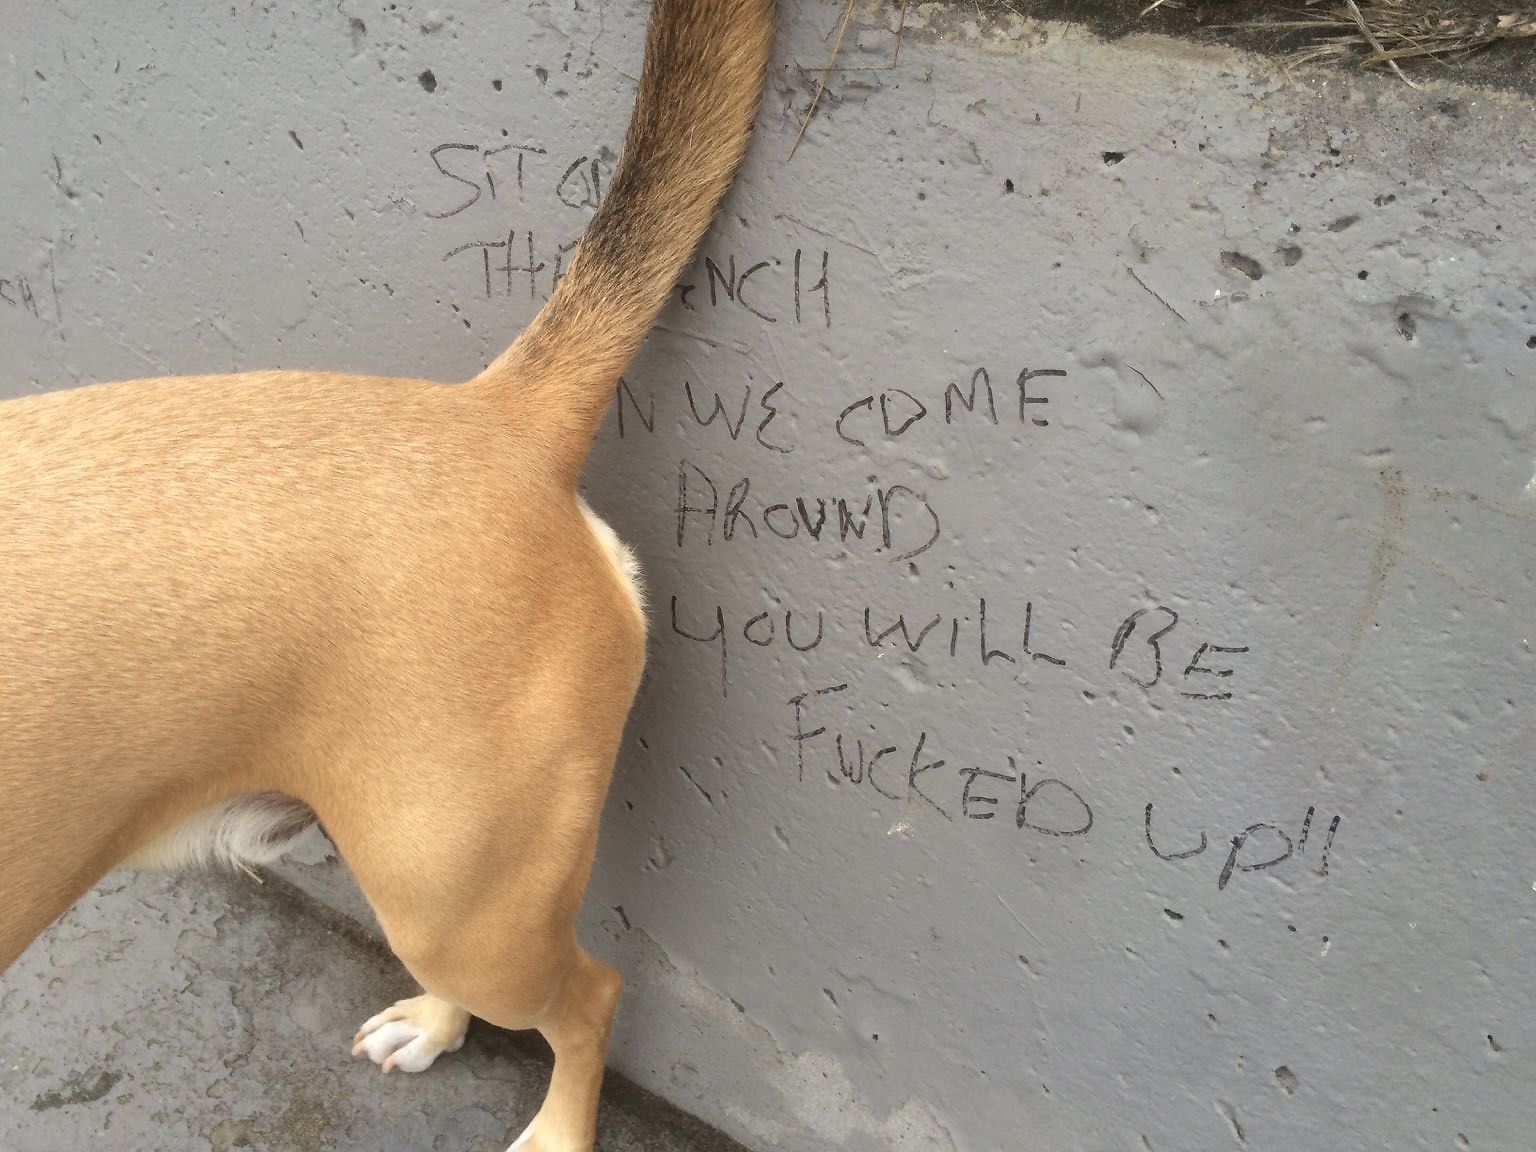 SIT ON
THE NCH
N WE COME
AROUND
YOU WILL BE
FUCKED UP!!